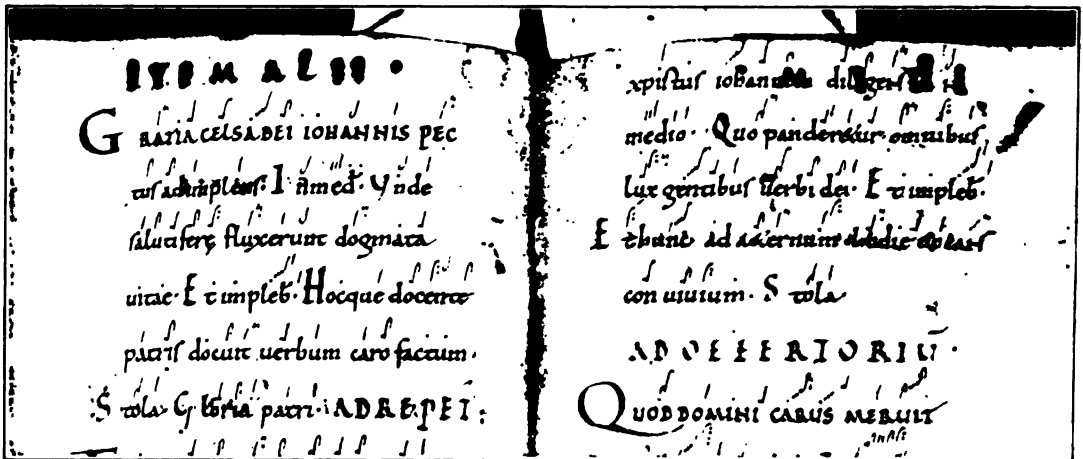 ITEM ALII ·
GRATIA CELSA DEI IOHANNIS PEC
tus adimplens· In med̄· Vnde
salutiferę fluxerunt dogmata
vitae· Et impleb̄· Hocque docente
patris docuit uerbum caro factum·
Stola· Gloria patri· AD REPET̄:
xpistus iohannem diligens
medio· Quo panderetur omnibus
lux gentibus Verbi dei· Et impleb̄·
Et hunc ad aeternum
conuiuium· Stola
AD OFFERTORIŪ·
QUOD DOMINI CARUS MERUIT